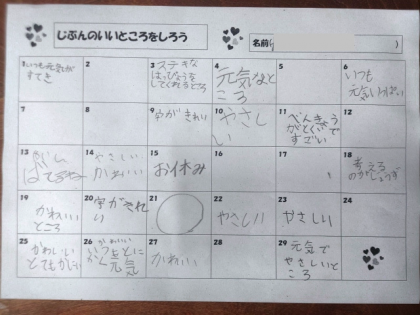 じぶんのいいところをしろう
名前(
1 いつも元気が
すてき
2
3 ステキな
はっぴょうを
してくれるところ
4
元気なと
ころ
5
6
いつも
元気いっぱい
7
8
9
字がきれい
10
やさし
い
11
べんきょう
がとくいで
すごい
12
13
14
やさしい
かわいい
15
お休み
16
17
18
考える
のがじょうず
19
かわいい
ところ
20
字がきれ
い
21
22
やさしい
23
やさしい
24
25
かわいい
とてもかわいい
26
元気
27
かわいい
28
29
元気で
やさしいと
ころ